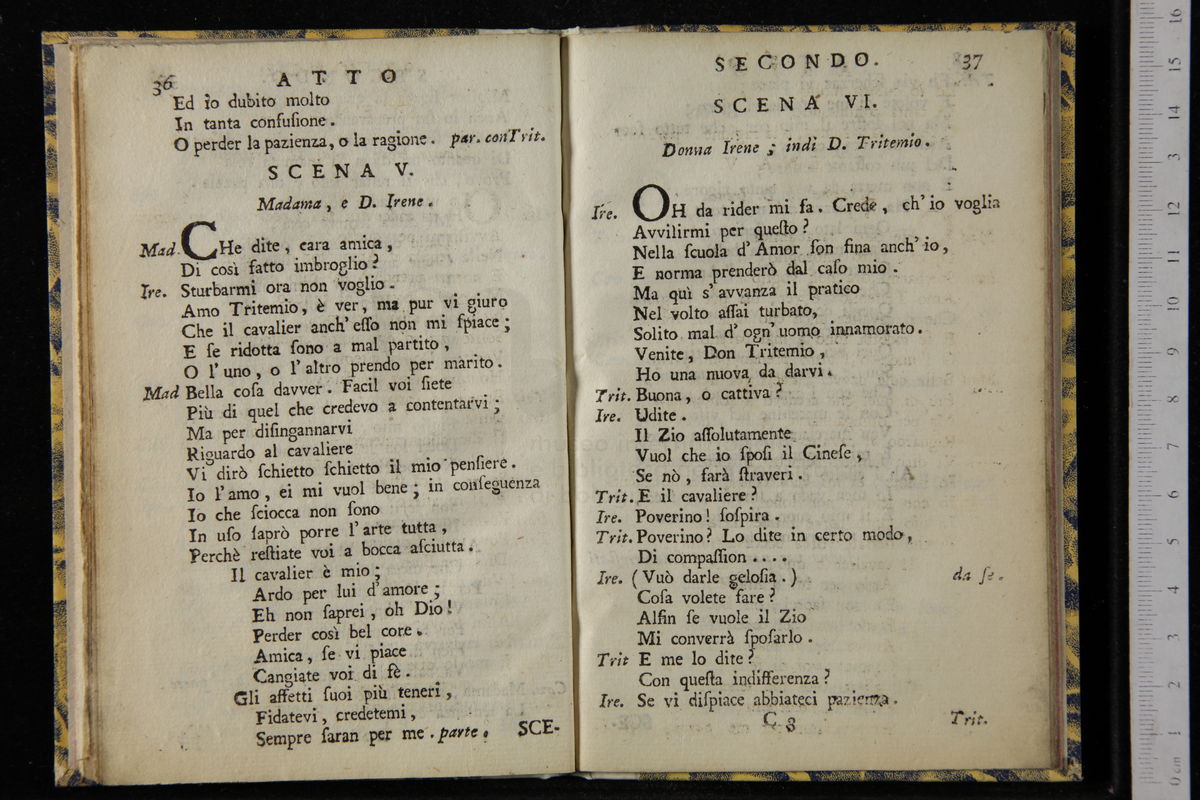 36 ATTO
Ed io dubito molto
In tanta confuſione.
O perder la pazienza, o la ragione. par. con Trit.
SCENA V.
Madama, e D. Irene.
Mad. CHe dite, cara amica,
Di così fatto imbroglio?
Ire. Sturbarmi ora non voglio.
Amo Tritemio, è ver, ma pur vi giuro
Che il cavalier anch' eſſo non mi ſpiace;
E ſe ridotta ſono a mal partito,
O l' uno, o l' altro prendo per marito.
Mad Bella coſa davver. Facil voi ſiete
Più di quel che credevo a contentarvi;
Ma per diſingannarvi
Riguardo al cavaliere
Vi dirò ſchietto ſchietto il mio penſiere.
Io l' amo, ei mi vuol bene; in conſeguenza
Io che ſciocca non ſono
In uſo ſaprò porre l' arte tutta,
Perchè reſtiate voi a bocca aſciutta.
Il cavalier è mio;
Ardo per lui d'amore;
Eh non ſaprei, oh Dio!
Perder così bel core.
Amica, ſe vi piace
Cangiate voi di fè.
Gli affetti ſuoi più teneri,
Fidatevi, credetemi,
Sempre ſaran per me. parte.
SCE-
SECONDO. 37
SCENA VI.
Donna Irene; indi D. Tritemio.
Ire. OH da rider mi fa. Crede, ch' io voglia
Avvilirmi per queſto?
Nella ſcuola d' Amor ſon fina anch' io,
E norma prenderò dal caſo mio.
Ma quì s' avvanza il pratico
Nel volto aſſai turbato,
Solito mal d' ogn' uomo innamorato.
Venite, Don Tritemio,
Ho una nuova da darvi.
Trit. Buona, o cattiva?
Ire. Udite.
Il Zio aſſolutamente
Vuol che io ſpoſi il Cineſe,
Se nò, farà ſtraveri.
Trit. E il cavaliere?
Ire. Poverino! ſoſpira.
Trit. Poverino? Lo dite in certo modo,
Di compaſſion ....
Ire. (Vuò darle geloſia.) da ſe.
Coſa volete fare?
Alfin ſe vuole il Zio
Mi converrà ſpoſarlo.
Trit E me lo dite?
Con queſta indifferenza?
Ire. Se vi diſpiace abbiateci pazienza.
C 3 Trit.
0 cm 1 2 3 4 5 6 7 8 9 10 11 12 13 14 15 16